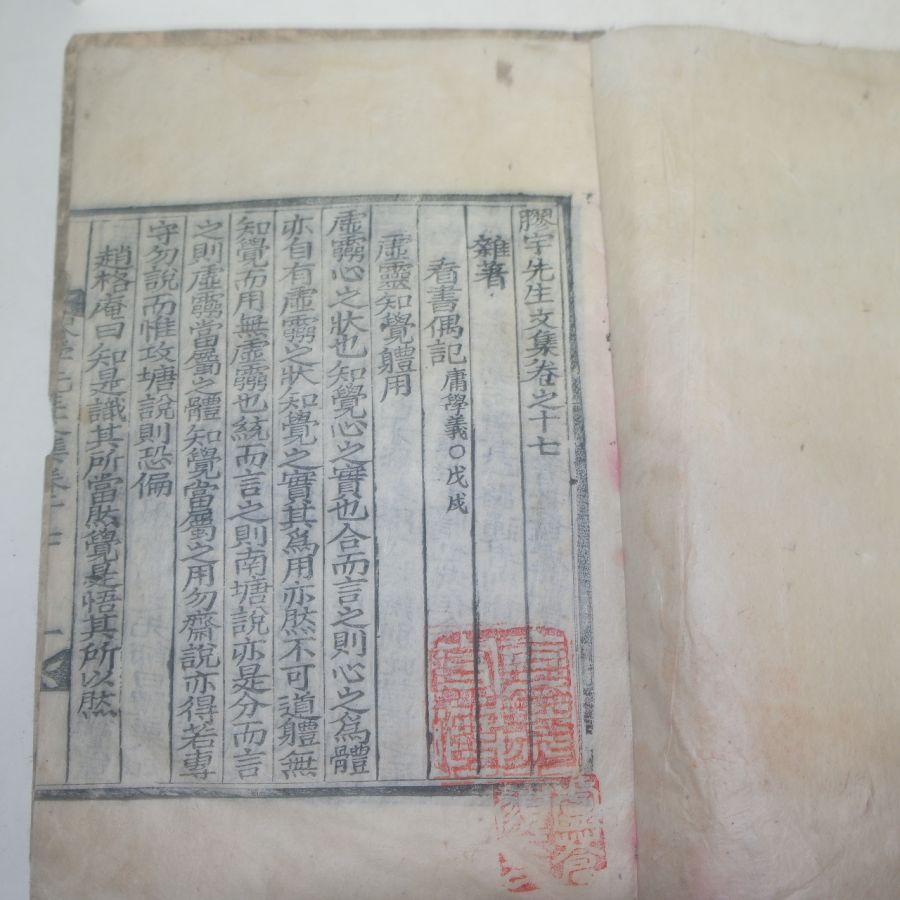 膠宇先生文集卷之十七
雜著
看書偶記 庸學義○戊戌
虛靈知覺體用
虛靈心之狀也知覺心之實也合而言之則心之爲體
亦自有虛靈之狀知覺之實其爲用亦然不可道體無
知覺而用無虛靈也統而言之則南塘說亦是分而言
之則虛靈當屬之體知覺當屬之用勿齋說亦得若專
守勿說而惟攻塘說則恐偏
趙格庵曰知是識其所當然覺是悟其所以然